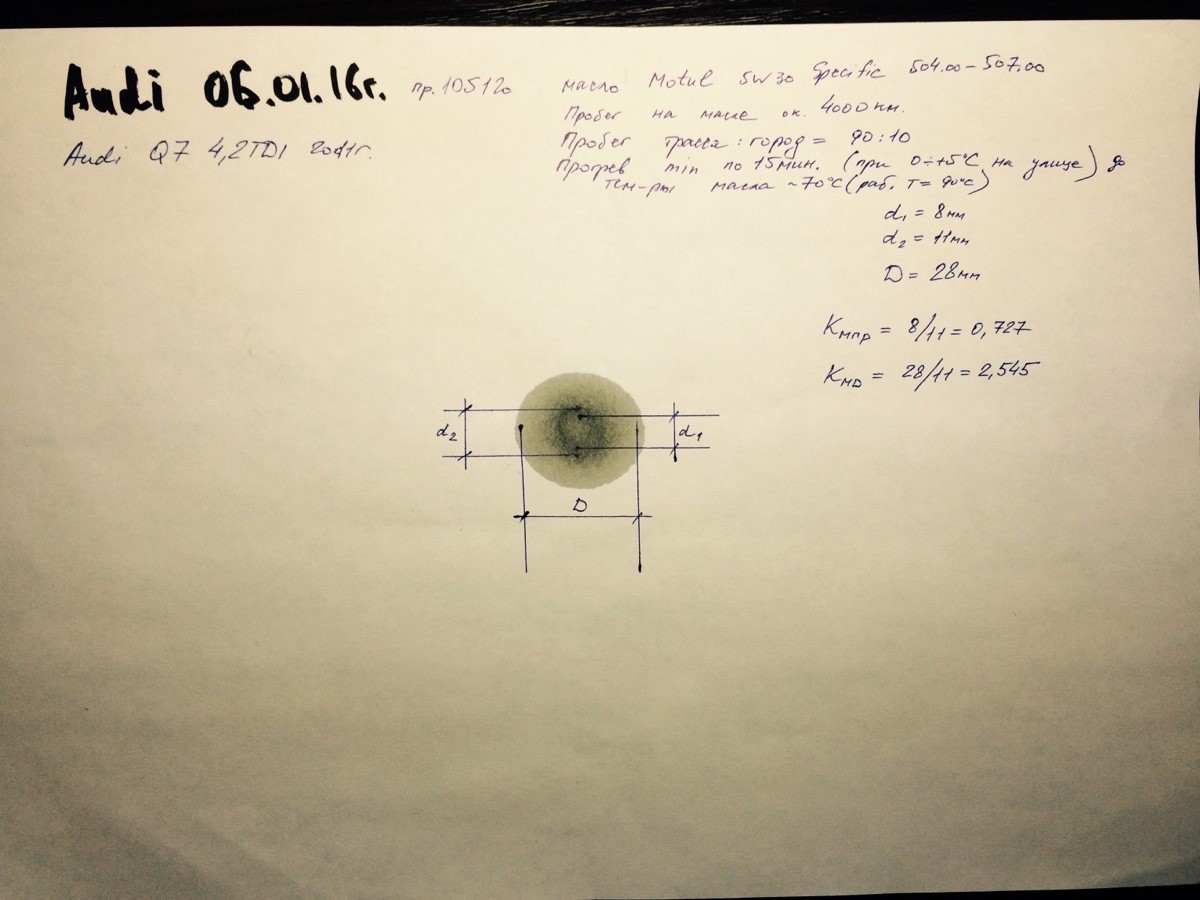 Audi 06.01.16г. пр. 105120
Audi Q7 4,2TDI 2011г.
масло Motul 5W30 Specific 504.00-507.00
Пробег на масле ок. 4000км.
Пробег трасса : город = 90:10
Прогрев min по 15мин. (при 0÷+5°C на улице) до
тем-ры масла ~70°C (раб. T = 90°C)
d₁ = 8мм
d₂ = 11мм
D = 28мм
Kмпр = 8/11 = 0,727
KмD = 28/11 = 2,545
d₂
d₁
D